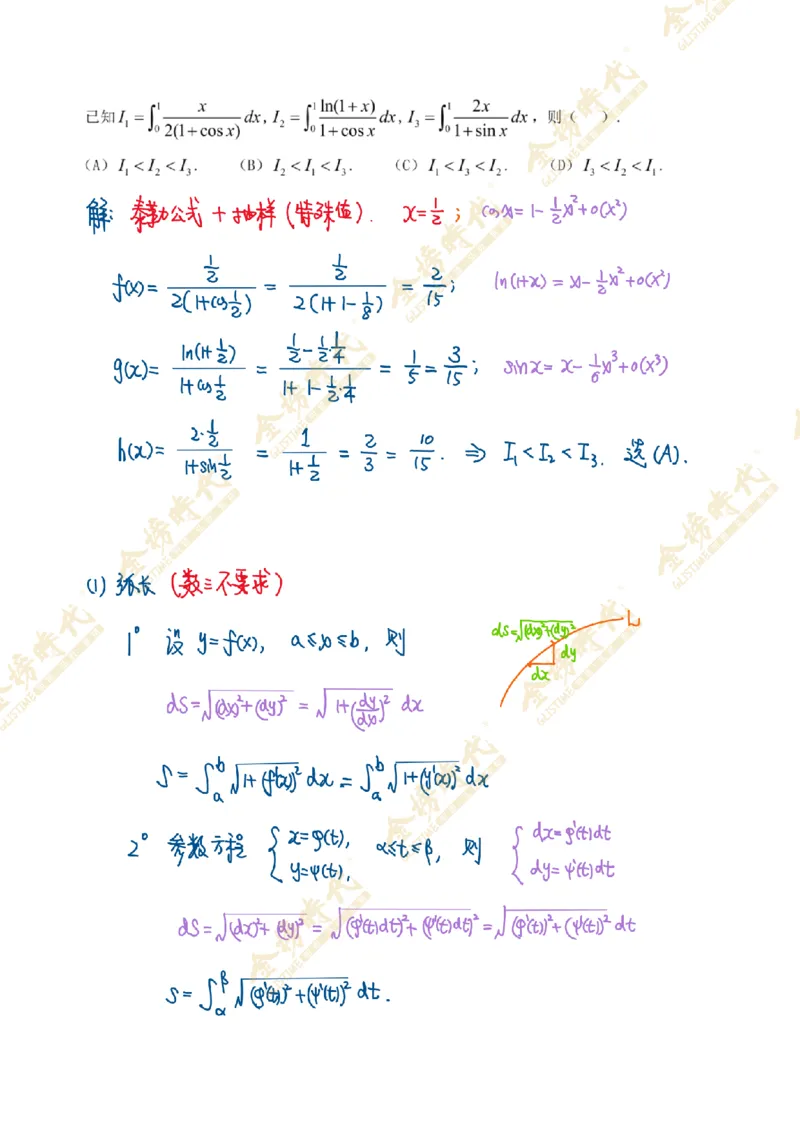 已知 I₁ = ∫₀¹ x/(2(1+cos x)) dx, I₂ = ∫₀¹ ln(1+x)/(1+cos x) dx, I₃ = ∫₀¹ 2x/(1+sin x) dx，则（ ）.
(A) I₁ < I₂ < I₃. (B) I₂ < I₁ < I₃. (C) I₁ < I₃ < I₂. (D) I₃ < I₂ < I₁.
解: 泰勒公式 + 抽样 (特殊值). x=1/2; cosx=1-1/2x²+o(x²)
f(x)= (1/2)/(2(1+cos1/2)) = (1/2)/(2(1+1-1/8)) = 2/15; ln(1+x)=x-1/2x²+o(x²)
g(x)= ln(1+1/2)/(1+cos1/2) = (1/2-1/2·1/4)/(1+1-1/2·1/4) = 1/5 = 3/15; sinx=x-1/6x³+o(x³)
h(x)= (2·1/2)/(1+sin1/2) = 1/(1+1/2) = 2/3 = 10/15. ⇒ I₁<I₂<I₃. 选(A).
(1) 弧长 (数三不要求)
1° 设 y=f(x), a≤x≤b, 则
dS=√((dx)²+(dy)²) L
dy
dx
dS=√((dx)²+(dy)²) = √(1+(dy/dx)²) dx
S=∫ₐᵇ √(1+(f'(x))²) dx = ∫ₐᵇ √(1+(y'(x))²) dx
2° 参数方程 { x=φ(t), y=ψ(t), α≤t≤β, 则 { dx=φ'(t)dt dy=ψ'(t)dt
dS=√((dx)²+(dy)²) = √((φ'(t)dt)²+(ψ'(t)dt)²) = √((φ'(t))²+(ψ'(t))²) dt
S=∫_α^β √((φ'(t))²+(ψ'(t))²) dt.
金榜時代
GLISTIME